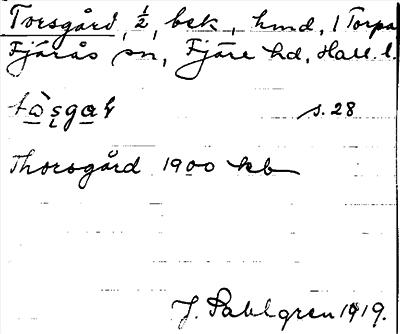 Torsgård, ½, bsk, hmd, 1 Torpa
Fjärås sn, Fjäre hd, Hall. l.
s. 28
Thorsgård 1900 kb
J. Sahlgren 1919.